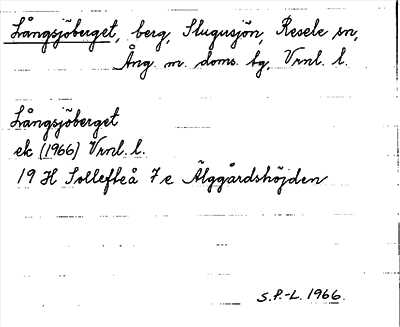 Långsjöberget, berg, Slugusjön, Resele sn,
Ång. m. doms. bg, Vrnl. l.
Långsjöberget
ek (1966) Vrnl. l.
19 H Sollefteå 7 e Älggårdshöjden
S.P.-L. 1966.